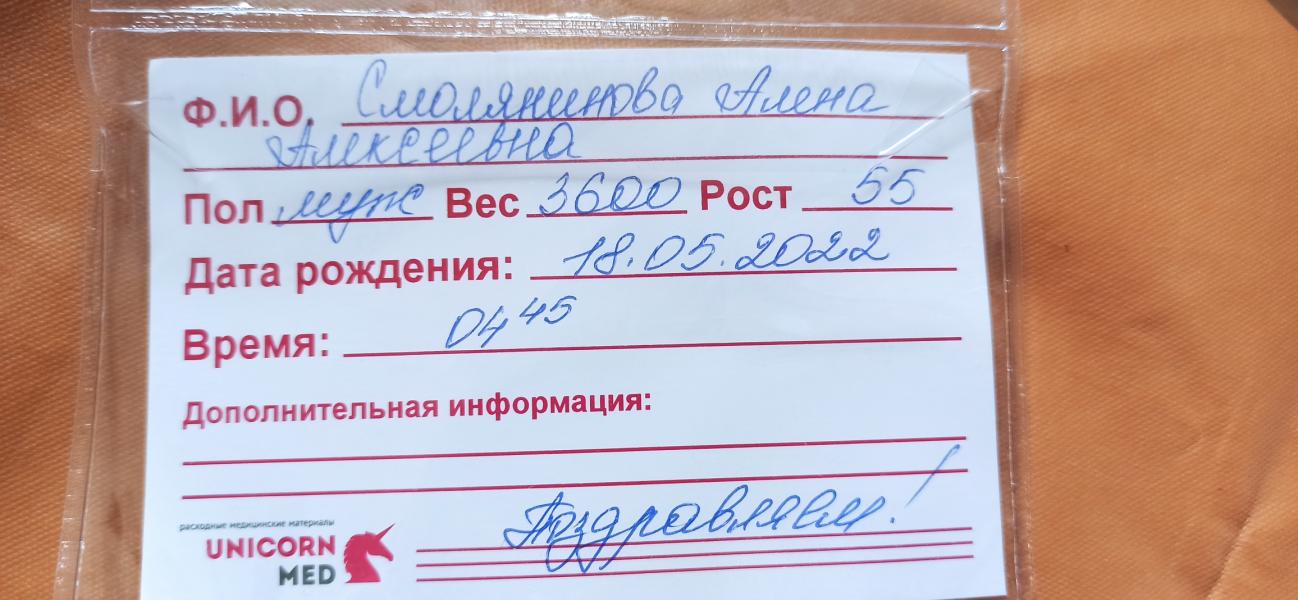 Ф.И.О. Смолянинова Алена
Алексеевна
Пол муж Вес 3600 Рост 55
Дата рождения: 18.05.2022
Время: 04 45
Дополнительная информация:
Поздравляем!
расходные медицинские материалы
UNICORN
MED